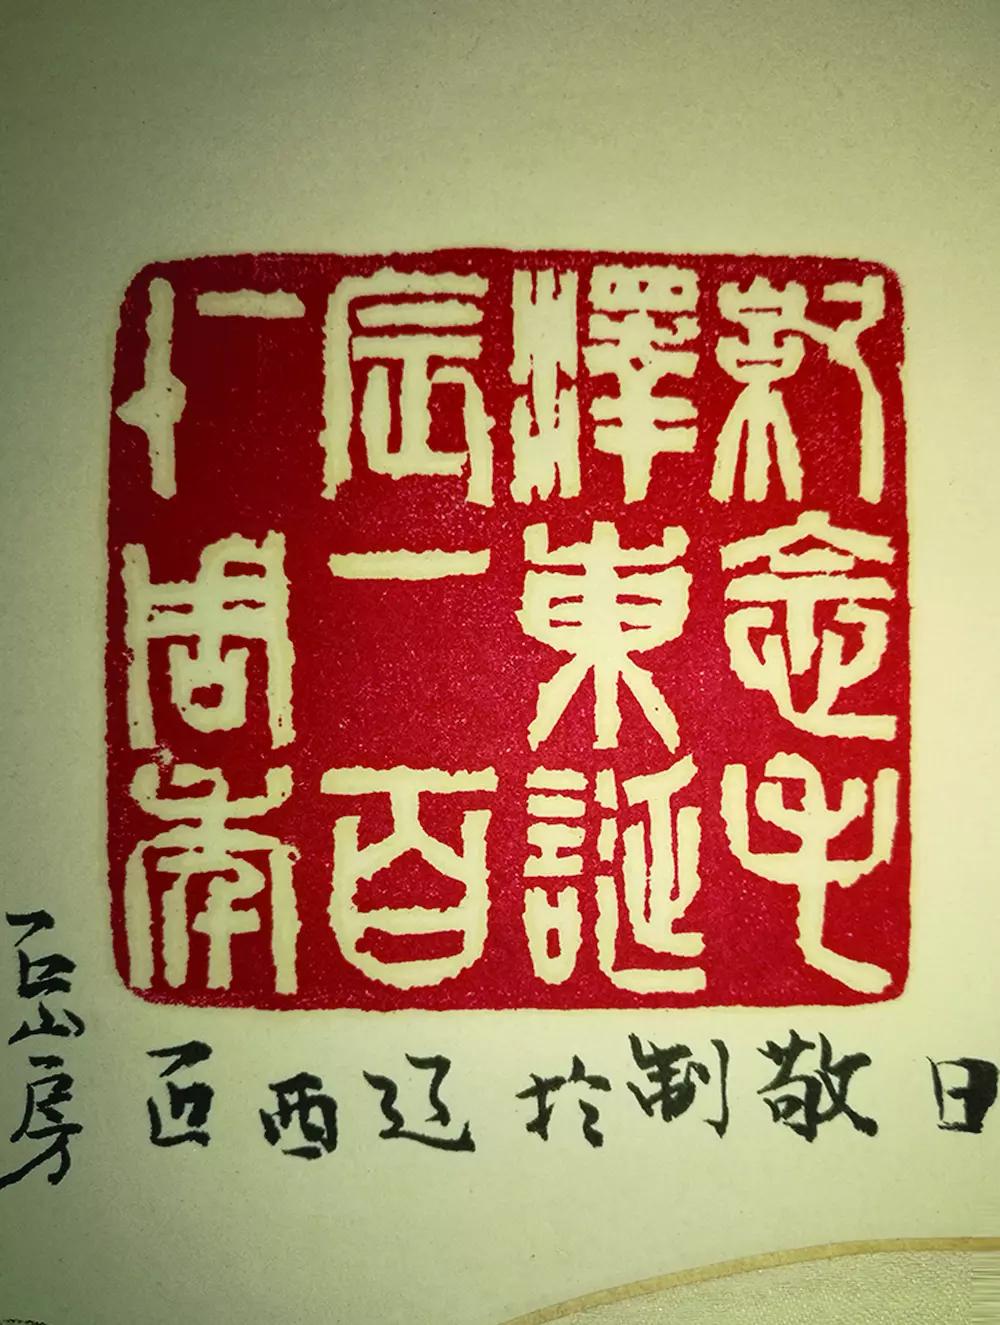 紀念毛
澤東誕
辰一百
一十周年
日敬制於辽西匠
石山房